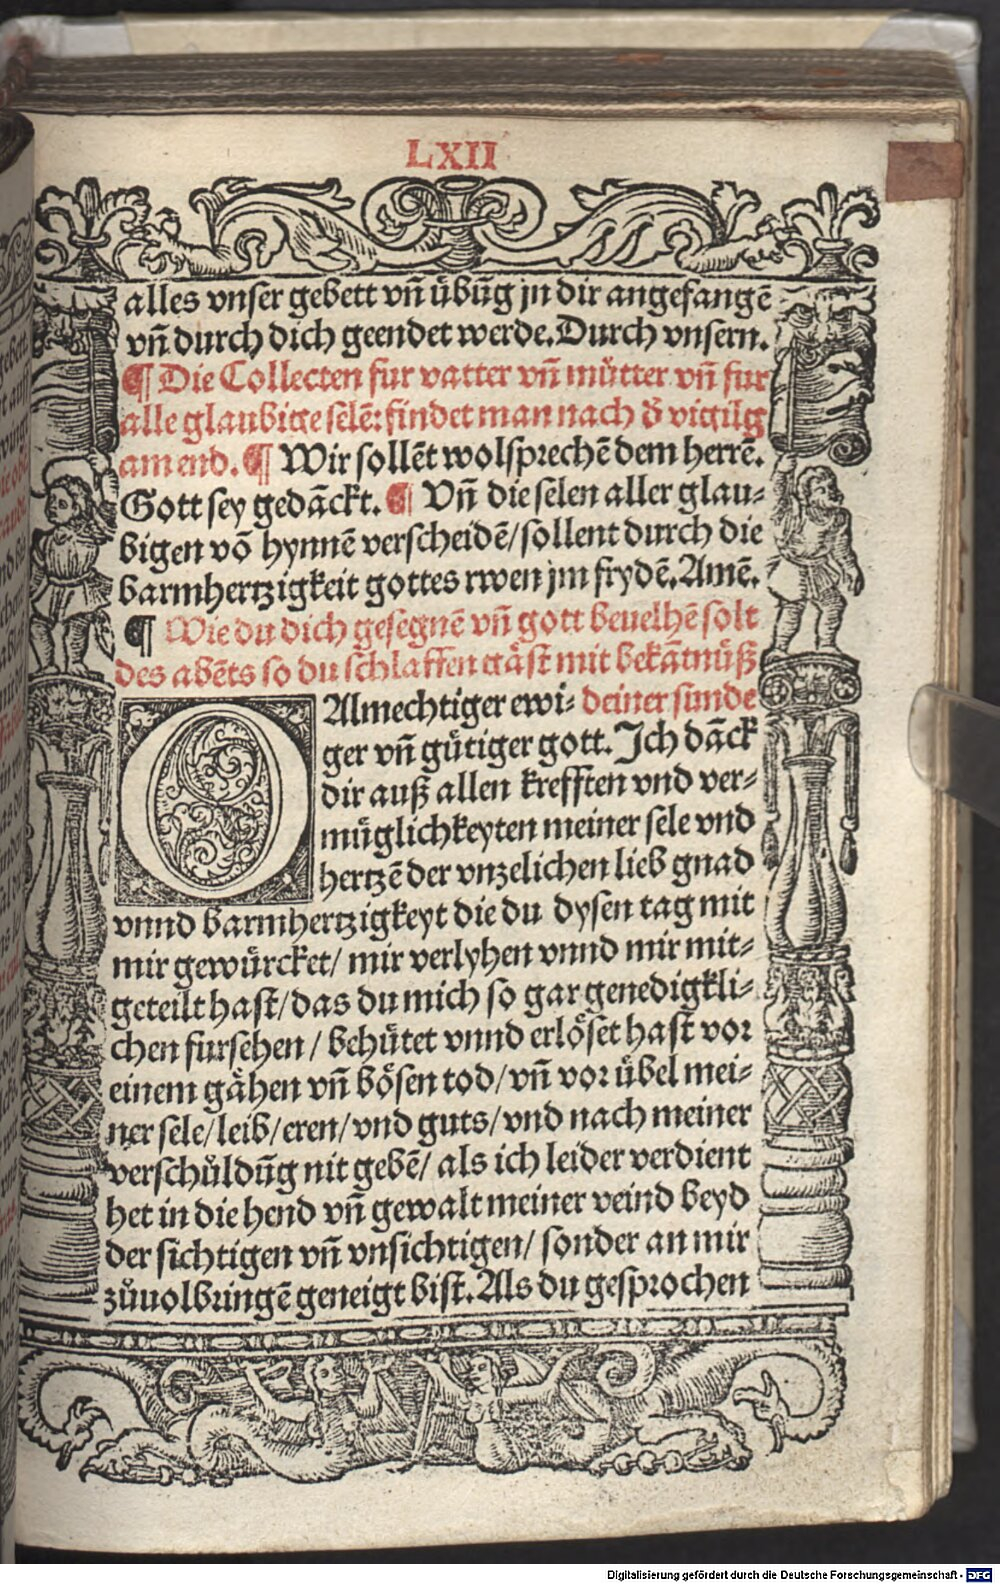 LXII
alles vnser gebett vñ übũg jn dir angefangẽ
vñ durch dich geendet werde. Durch vnsern.
¶ Die Collecten fur vatter vñ můtter vñ fur
alle glaubige selẽ: findet man nach d̕ vigilg
am end. ¶ Wir sollẽt wolsprechẽ dem herrẽ.
Gott sey gedãckt. ¶ Vñ die selen aller glau⸗
bigen võ hynnẽ verscheidẽ/ sollent durch die
barmhertzigkeit gottes rwen jm frydẽ. Amẽ.
¶ Wie du dich gesegnẽ vñ gott beuelhẽ solt
des abẽts so du schlaffen gäst mit bekãtnüß
deiner sunde
O Almechtiger ewi⸗
ger vñ gütiger gott. Ich dãck
dir auß allen krefften vnd ver⸗
müglichkeyten meiner sele vnd
hertzẽ der vnzelichen lieb gnad
vnnd barmhertzigkeyt die du dysen tag mit
mir gewürcket/ mir verlyhen vnnd mir mit⸗
geteilt hast/ das du mich so gar genedigkli⸗
chen fursehen / behütet vnnd erlöset hast vor
einem gähen vñ bösen tod/ vñ vor übel mei⸗
ner sele/ leib/ eren/ vnd guts/ vnd nach meiner
verschůldũg nit gebẽ/ als ich leider verdient
het in die hend vñ gewalt meiner veind beyd
der sichtigen vñ vnsichtigen/ sonder an mir
zůuolbringẽ geneigt bist. Als du gesprochen
Digitalisierung gefördert durch die Deutsche Forschungsgemeinschaft - DFG